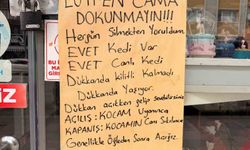 LÜTFEN CAMA
DOKUNMAYIN!!!
Hergün Silmekten Yoruldum
EVET Kedi Var
EVET Canlı Kedi
Dükkanda Kilitli Kalmadı
Dükkanda Yaşıyor.
Dükkan açıkken gelip sevebilirsiniz
AÇILIŞ: KOCAM Uyanınca
KAPANIŞ: KOCAMIN Canı Sıkılınca
Genellikle Öğleden Sonra Açığız.